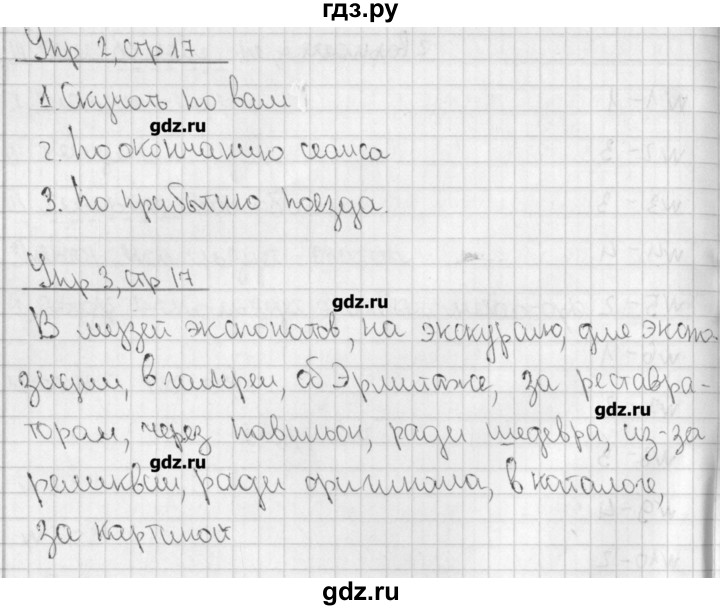 гдз.ру
Упр 2, стр 17
1. Скучать по вам
gdz.ru
2. По окончанию сеанса
3. По прибытию поезда.
Упр 3, стр 17
gdz.ru
В музей экспонатов, на экскурсию, для экспо-
зиции, в галереи, об Эрмитаже, за реставра-
gdz.ru
тором, через павильон, ради шедевра, из-за
gdz.ru
реликвии, ради оригинала, в каталоге,
за картиной
gdz.ru